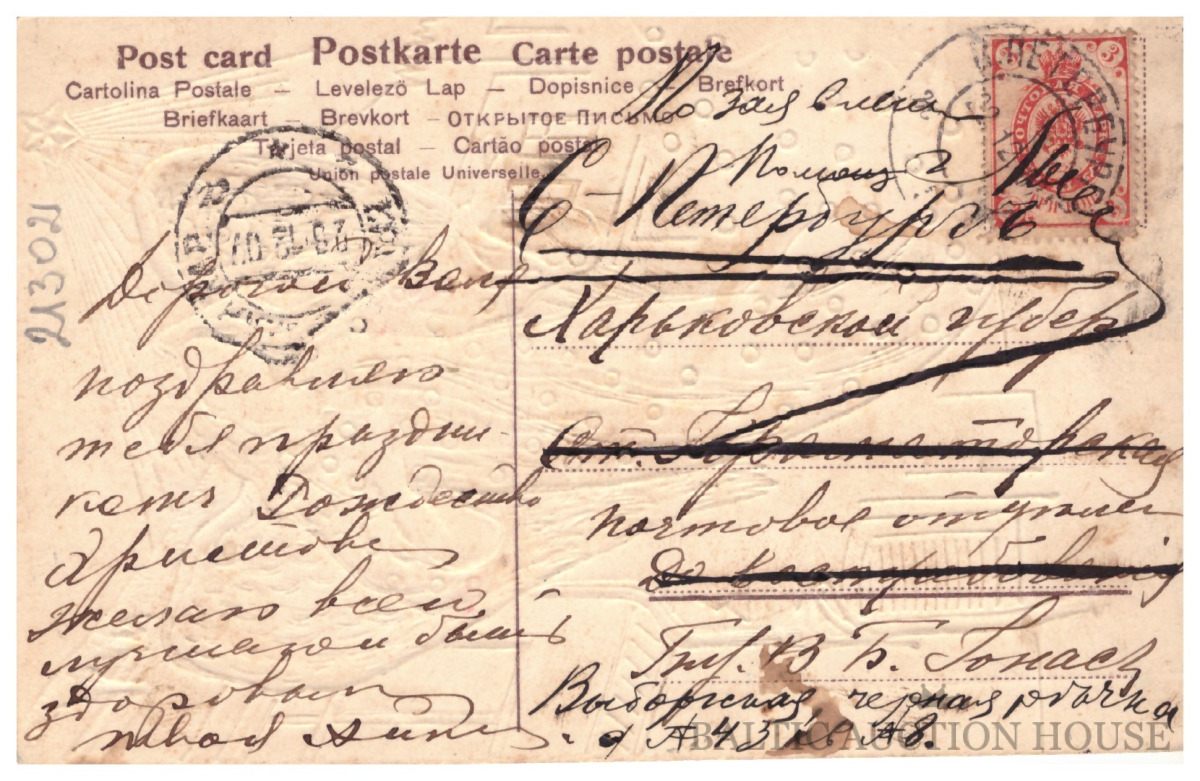 Post card Postkarte Carte postale
Cartolina Postale – Levelező Lap – Dopisnice – Brefkort
Briefkaart – Brevkort – ОТКРЫТОЕ ПИСЬМО
Tarjeta postal – Cartão postal
Union postale Universelle.
21302
28 12 07
Дорогой
поздравляю
тебя праздни-
комъ Рождество
Христове
желаю всего
лучшаго и быть
здоровым
твоя
По заявлен
Помощ
С-Петербургъ
Харьковской губер
Ст. Краматорская
почтовое отделен
До востребования
В Б. Гонасц
Выборская, черная речка
д А 45 к А8.
3
BALTIC AUCTION HOUSE